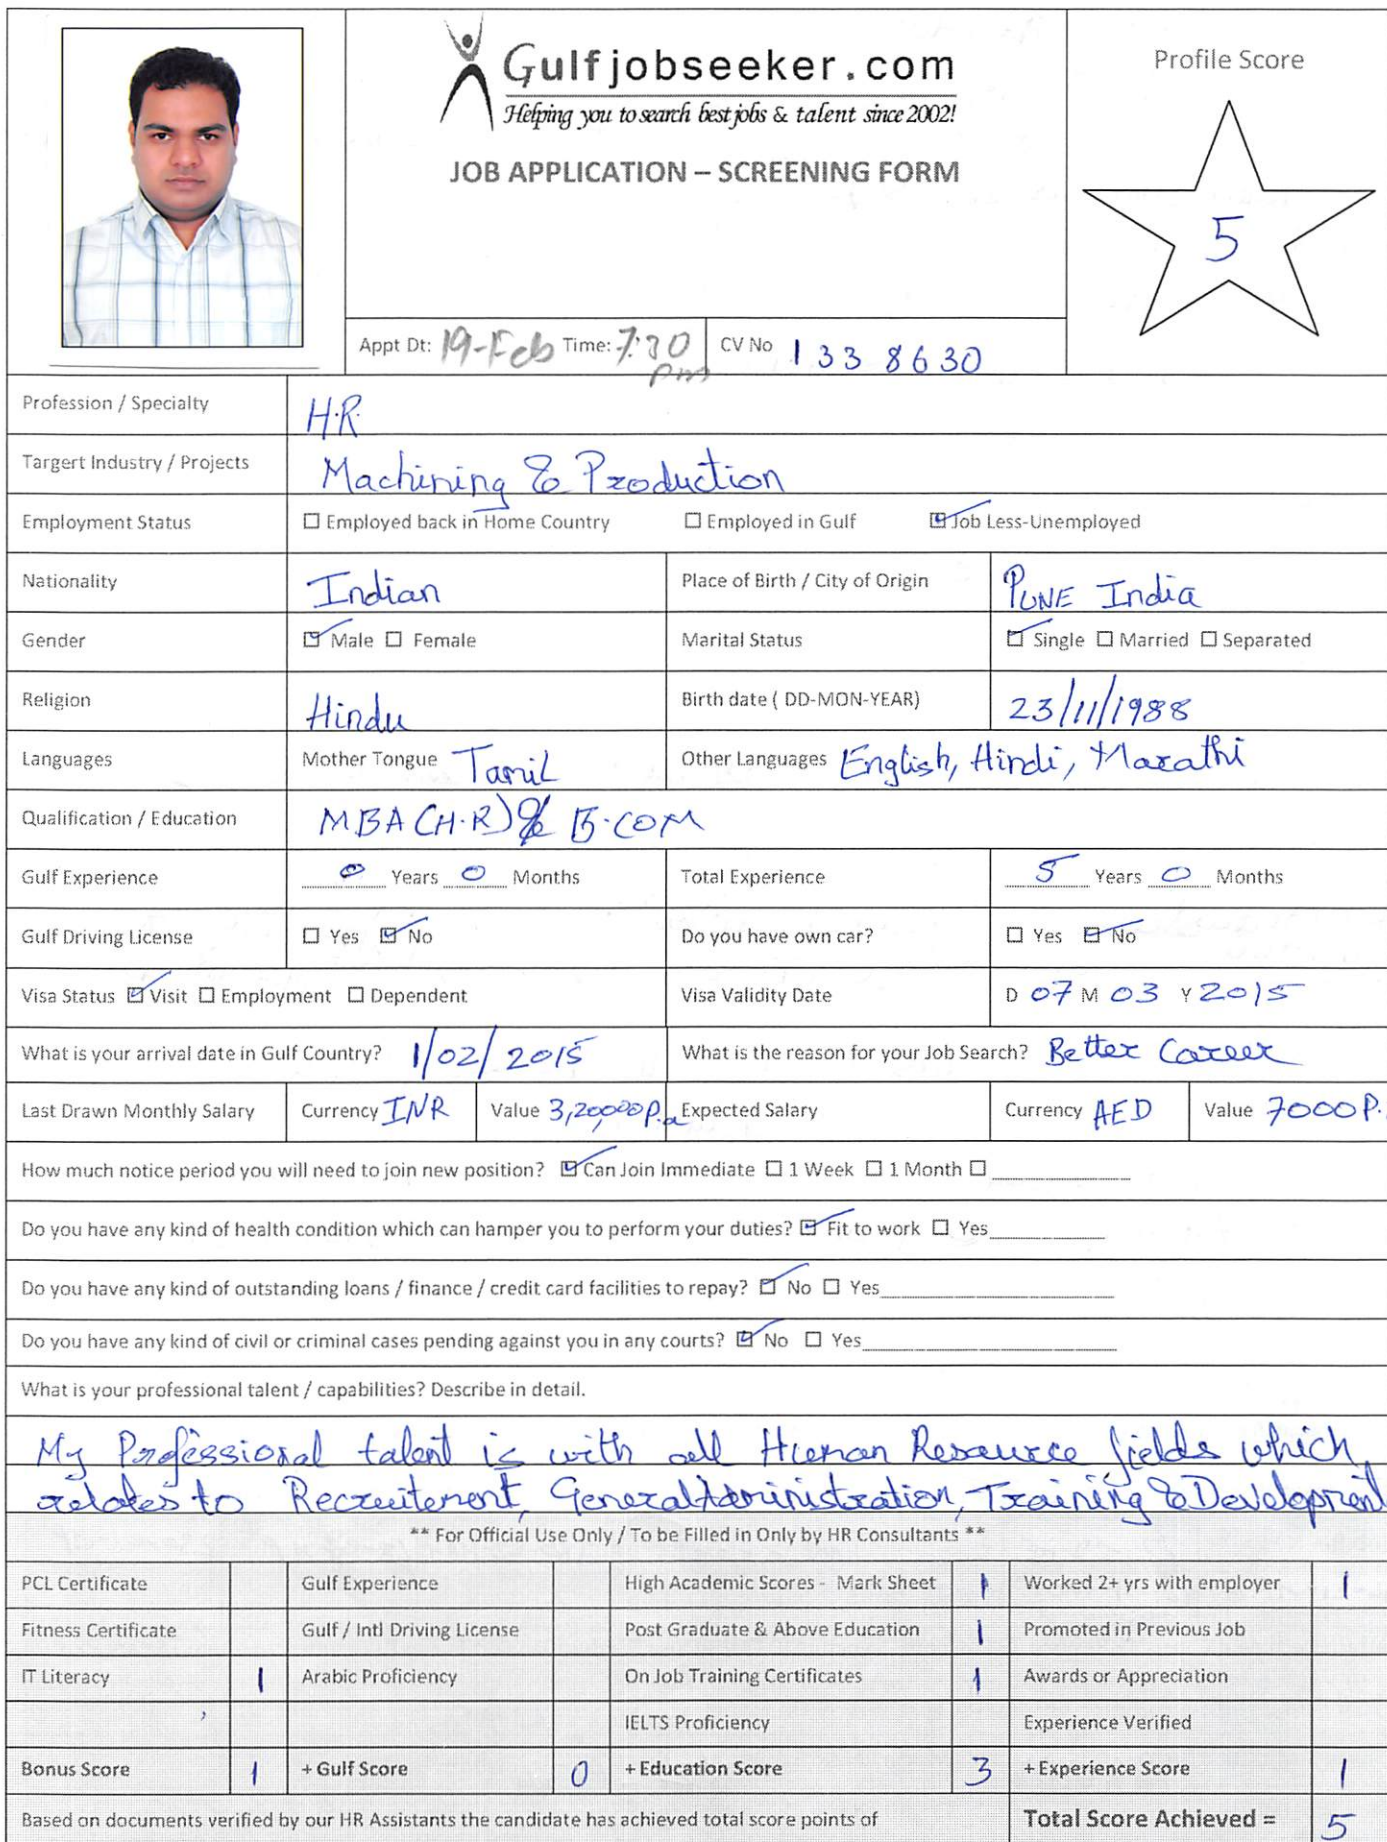 Gulfjobseeker.com
Helping you to search best jobs & talent since 2002!
JOB APPLICATION – SCREENING FORM
Profile Score
5
Appt Dt: 19-Feb Time: 7:30 pm
CV No 1338630
Profession / Specialty H.R.
Targert Industry / Projects Machining & Production
Employment Status ☐ Employed back in Home Country ☐ Employed in Gulf ☑ Job Less-Unemployed
Nationality Indian Place of Birth / City of Origin PUNE India
Gender ☑ Male ☐ Female Marital Status ☑ Single ☐ Married ☐ Separated
Religion Hindu Birth date ( DD-MON-YEAR) 23/11/1988
Languages Mother Tongue Tamil Other Languages English, Hindi, Marathi
Qualification / Education MBA (H.R) & B.COM
Gulf Experience 0 Years 0 Months Total Experience 5 Years 0 Months
Gulf Driving License ☐ Yes ☑ No Do you have own car? ☐ Yes ☑ No
Visa Status ☑ Visit ☐ Employment ☐ Dependent Visa Validity Date D 07 M 03 Y 2015
What is your arrival date in Gulf Country? 1/02/2015 What is the reason for your Job Search? Better Career
Last Drawn Monthly Salary Currency INR Value 3,20,000 P.a Expected Salary Currency AED Value 7000 P.
How much notice period you will need to join new position? ☑ Can Join Immediate ☐ 1 Week ☐ 1 Month ☐
Do you have any kind of health condition which can hamper you to perform your duties? ☑ Fit to work ☐ Yes
Do you have any kind of outstanding loans / finance / credit card facilities to repay? ☑ No ☐ Yes
Do you have any kind of civil or criminal cases pending against you in any courts? ☑ No ☐ Yes
What is your professional talent / capabilities? Describe in detail.
My Professional talent is with all Human Resource fields which
relates to Recruitement, General Administration, Training & Development
** For Official Use Only / To be Filled in Only by HR Consultants **
PCL Certificate Gulf Experience High Academic Scores - Mark Sheet 1 Worked 2+ yrs with employer 1
Fitness Certificate Gulf / Intl Driving License Post Graduate & Above Education 1 Promoted in Previous Job
IT Literacy 1 Arabic Proficiency On Job Training Certificates 1 Awards or Appreciation
IELTS Proficiency Experience Verified
Bonus Score 1 + Gulf Score 0 + Education Score 3 + Experience Score 1
Based on documents verified by our HR Assistants the candidate has achieved total score points of Total Score Achieved = 5